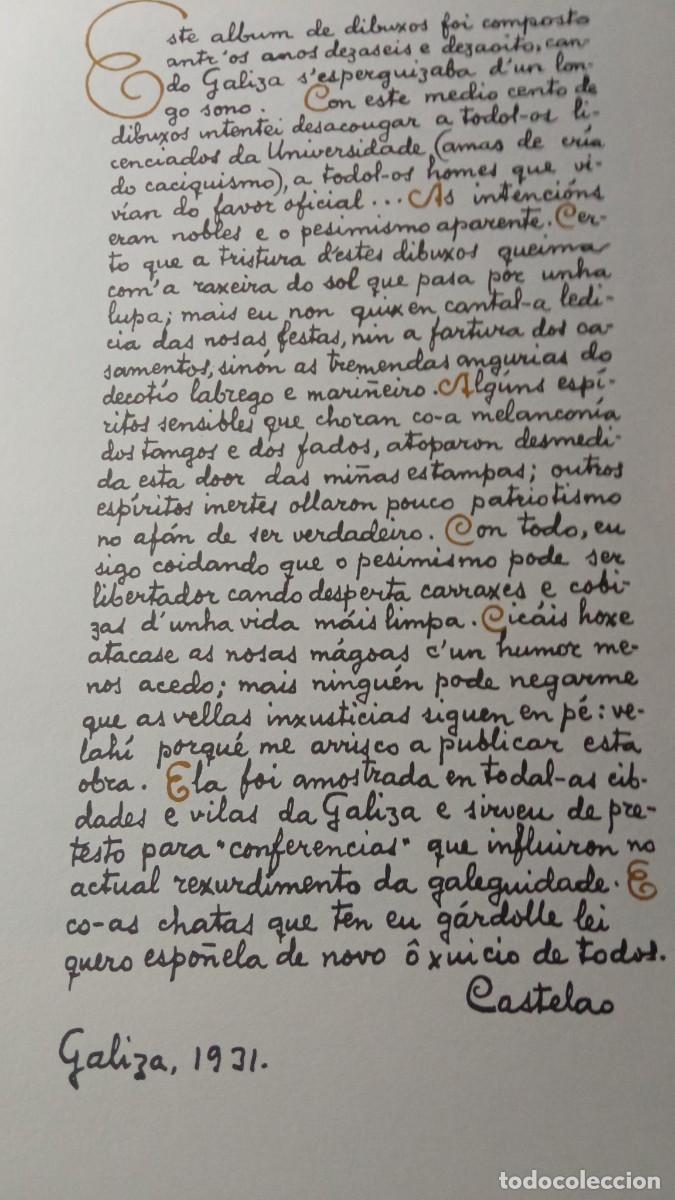 Este album de dibuxos foi composto
antr'os anos dezaseis e dezaoito, can-
do Galiza s'esperguizaba d'un lon-
go sono. Con este medio cento de
dibuxos intentei desacougar a todol-os li-
cenciados da Universidade (amas de cría
do caciquismo), a todol-os homes que vi-
vían do favor oficial... As intencións
eran nobles e o pesimismo aparente. Cer-
to que a tristura d'estes dibuxos queima
com'a raxeira do sol que pasa por unha
lupa; mais eu non quixen cantal-a ledi-
cia das nosas festas, nin a fartura dos ca-
samentos, sinón as tremendas angurias do
decotío labrego e mariñeiro. Algúns espí-
ritos sensibles que choran co-a melanconía
dos tangos e dos fados, atoparon desmedi-
da esta door das miñas estampas; outros
espíritos inertes ollaron pouco patriotismo
no afán de ser verdadeiro. Con todo, eu
sigo coidando que o pesimismo pode ser
libertador cando desperta carraxes e cobi-
zas d'unha vida máis limpa. Cicáis hoxe
atacase as nosas mágoas c'un humor me-
nos acedo; mais ninguén pode negarme
que as vellas inxusticias siguen en pé: ve-
lahí porqué me arrisco a publicar esta
obra. Ela foi amostrada en todal-as cib-
dades e vilas da Galiza e sirveu de pre-
testo para "conferencias" que influiron no
actual rexurdimento da galeguidade. E
co-as chatas que ten eu gárdolle lei
quero espoñela de novo ô xuicio de todos.
Castelao
Galiza, 1931.
todocoleccion